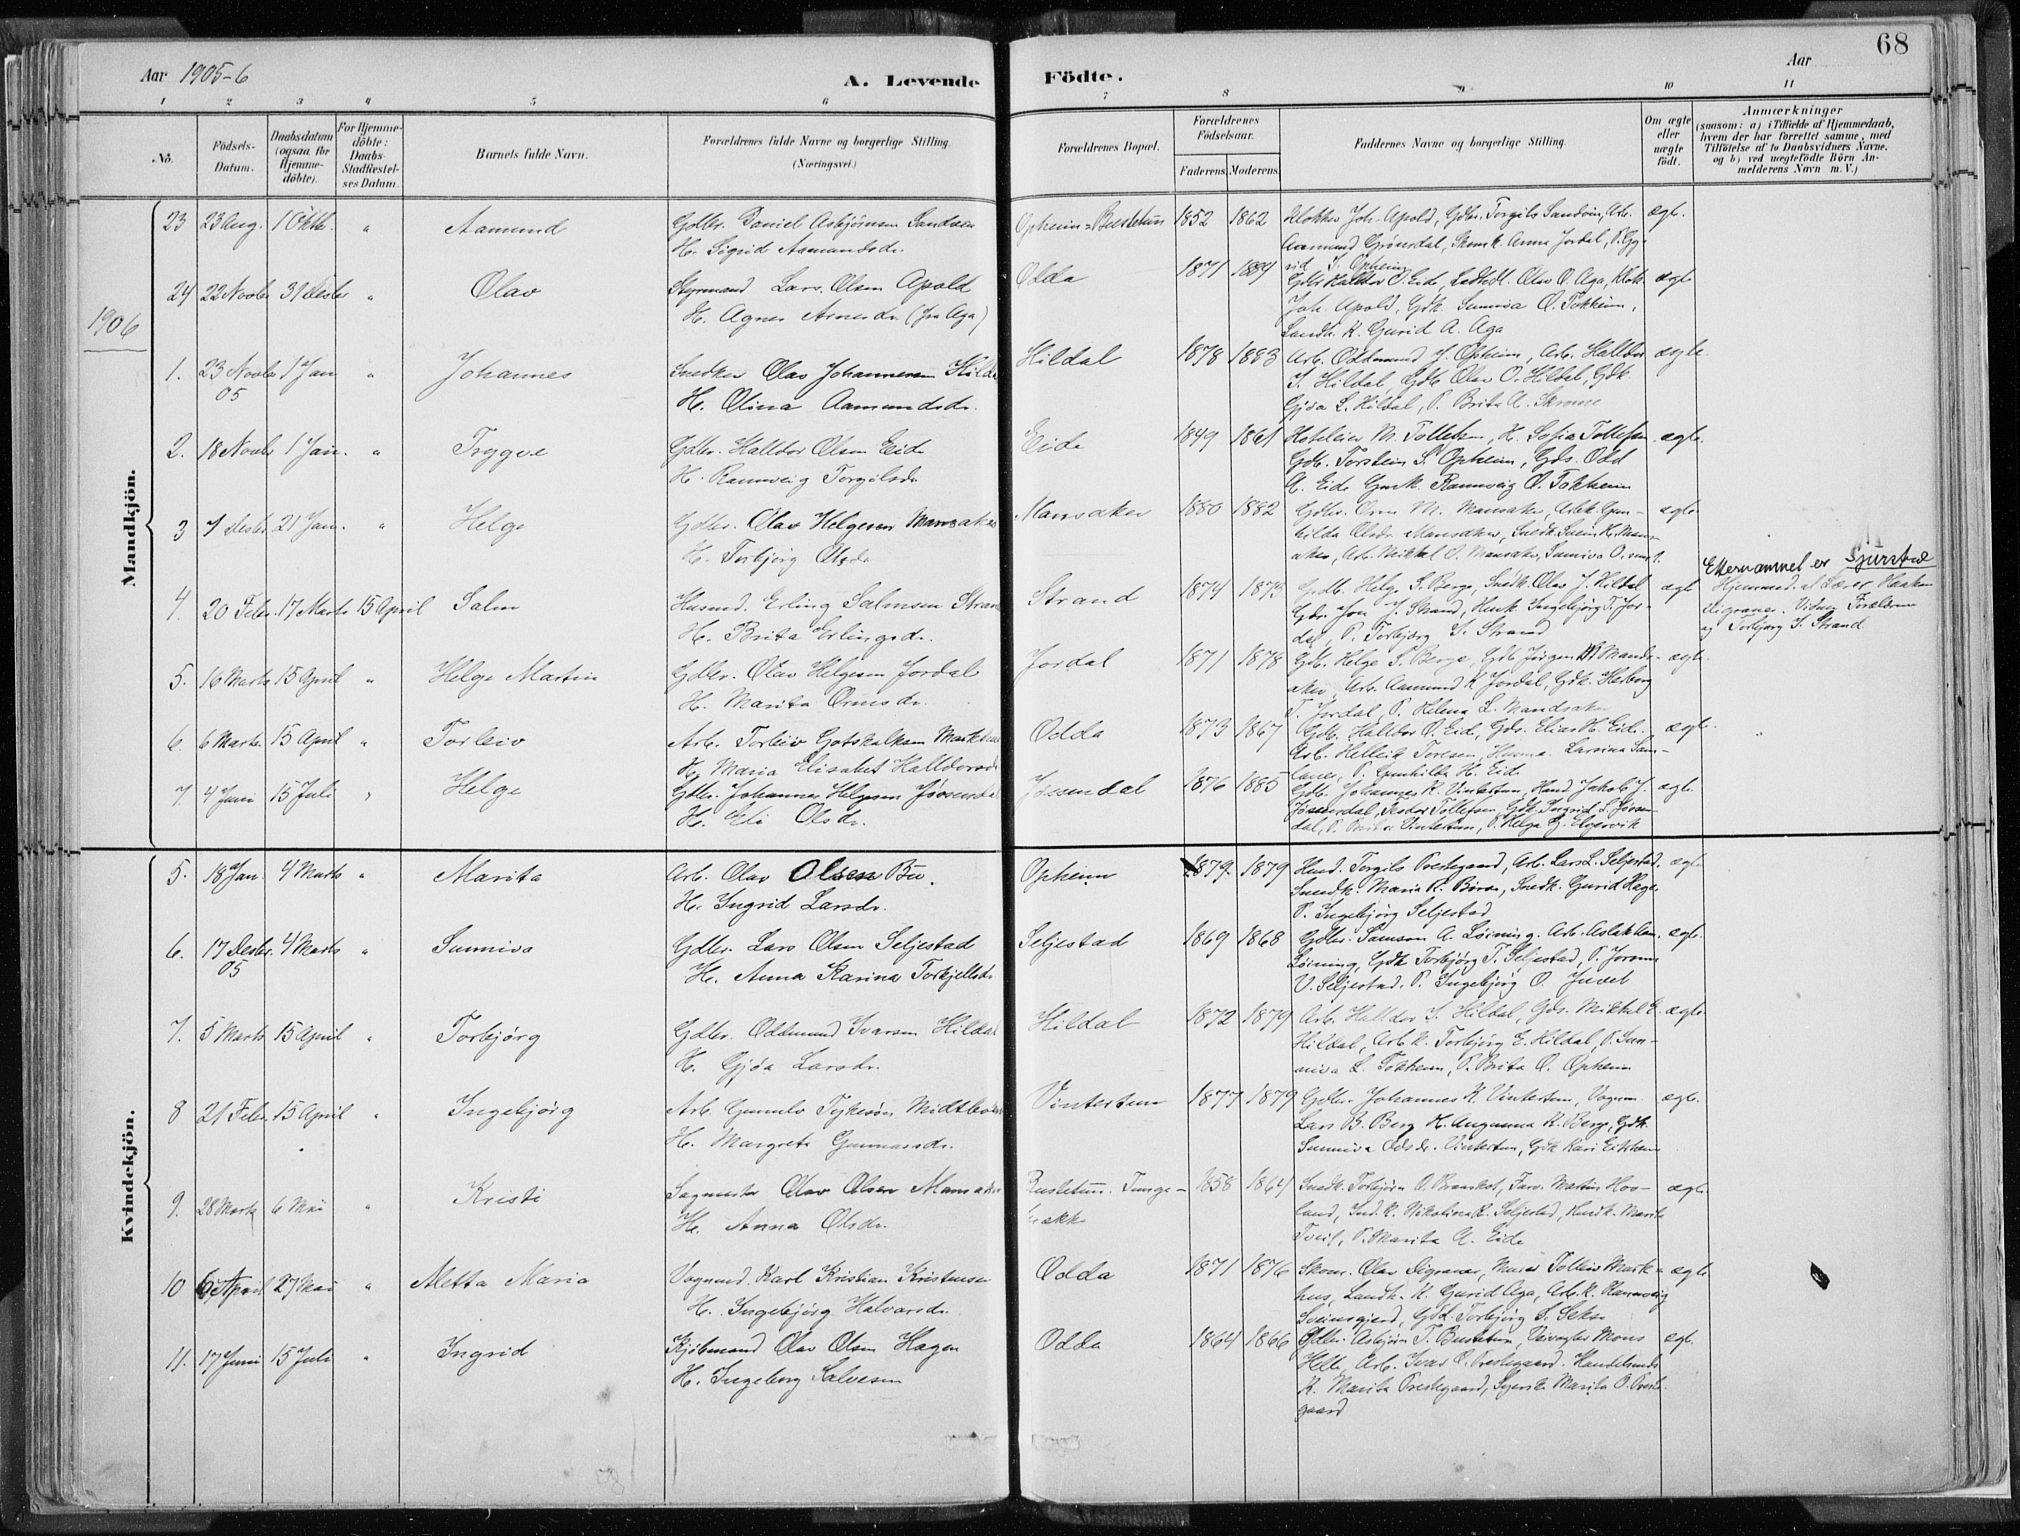 68
Aar 1905-6
A. Levende Födte.
Aar
1 2 3 4 5 6 7 8 9 10 11
No.
Födsels-Datum.
Daabsdatum (ogsaa for Hjemme-döbte).
For Hjemme-döbte: Daabs-Stadfæstel-ses Datum.
Barnets fulde Navn.
Forældrenes fulde Navne og borgerlige Stilling. (Næringsvei.)
Forældrenes Bopæl.
Forældrenes Födselsaar.
Faderens. Moderens.
Faddernes Navne og borgerlige Stilling.
Om ægte eller uægte födt.
Anmærkninger (saasom: a) i Tilfælde af Hjemmedaab, hvem der har forrettet samme, med Tilföielse af to Daabsvidners Navne, og b) ved uægtefödte Börn An-melderens Navn m. V.)
Mandkjön.
23 23 Aug. 1 Oktb. " Aamund
Gdbr. Daniel Asbjörnsen Sandven
H. Sigrid Aamundsdr.
Opheim-Bustetun 1852 1862
Klokker Joh. Apold, Gdbr. Torgils Sandvin, Arb.
Aamund Grönsdal, Anna Jordal, P. Gy-
rid S. Opheim
ægte.
24 22 Novbr 31 Desbr " Olav
Styrmand Lars Olsen Apold
H. Agnes Arnesdr (fra Aga)
Odda 1871 1884
Gdbr Halldor O. Eide, Olav O. Aga, Klok.
Joh. Apold, Gdk. Sunniva O. Tokheim,
Landh. K. Gurid A. Aga
ægte
1906
1. 23 Novbr 05 1 Jan " Johannes
Snedker Olav Johannessen Hilda
H. Olina Aamundsdr.
Hildal 1878 1883
Arb. Oddmund J. Opheim, Arb. Halldor
S. Hildal, Gdb Olav O. Hildal, Gdk.
Gjöa L. Hildal, P. Brita A.
ægte.
2. 18 Novbr 1 Jan. " Trygve
Gdbr. Halldor Olsen Eide
H. Rannveig Torgilsdr
Eide 1849 1861
Hoteleier M. Tollefsen, H. Sofia Tollefsen
Gdb. Torstein S. Opheim, Gds. Odd
A. Eide Rannveig O. Tokheim
ægte.
3 7 Desbr. 21 Jan. " Helge
Gdbr. Olav Helgesen Mansaker
H. Torbjörg Olsdr
Mansaker 1880 1882
Gdbr. Orm M. Mansaker, Arbk. Gun-
hilda Olsdr Mansaker, Snedk. Svein H. Man-
saker, Arb. Mikkel O. Mansaker, Sunniva O.
ægte
4. 20 Febr. 17 Marts 15 April Salm
Husmd. Erling Salmsen Strand
H. Brita Erlingsdr.
Strand 1874 1873
Gdb. Helge S. Berge, Snedk. Olav J. Hildal
Gdbr. Jon J. Strand, Ingebjörg T. Jor-
dal, P. Torbjörg S. Strand
ægte
Etternamnet er Sjurstræ
Hjemmed. af Lærer Haakon
Digranes. Vidner Forældrene
og Torbjörg S. Strand
5. 16 Marts 15 April " Helge Martin
Gdbr. Olav Helgesen Jordal
H. Marita Ormsdr.
Jordal 1871 1878
Gdb. Helge S. Berge, Gdb Jörgen M Mands-
aker, Arb. Aamund K Jordal, Gdk. Herborg
T. Jordal, P. Helena L. Mandsaker
ægte.
6. 6 Marts 15 April " Torleiv
Arb. Torleiv Gotskalksen Markhus
H. Maria Elisabet Halldorsdr
Odda 1873 1867
Gdb. Halldor O. Eide, Gds. Elias H. Eide
Arb. Helleik Toresen, Larsina Sam-
P. Gunhilda H. Eide
ægte.
7 4 Juni 15 Juli " Helge
Gdbr. Johannes Helgesen Jössendal
H. Eli Olsdr.
Jössendal 1876 1885
Gdb. Johannes K. Vintertun, Jakob J.
Jössendal, Tollefsen, Gdk. Ingrid L. Jössen-
dal, P. Brita Vintertun, P. Helga
ægte.
Kvindekjön.
5. 18 Jan. 4 Marts " Marita
Arb. Olav Olsen Bu.
H. Ingrid Larsdr.
Opheim 1879. 1879
Torgils Prestegaard, Arb. Lars L. Seljestad.
Snedk. Maria R. Börse, Snedk. Gurid Hage.
P. Ingebjörg Seljestad
ægte.
6. 17 Desbr. 05 4 Marts " Sunniva
Gdbr. Lars Olsen Seljestad
H. Anna Karina Torkjellsdr
Seljestad 1869 1868
Gdbr. Samson A. Löining. Arb. Aslak
Löining, Gdk Torbjörg T. Seljestad, P.
V. Seljestad. P. Ingebjörg O. Juvet
ægte.
7. 5 Marts 15 April " Torbjörg
Gdbr. Oddmund Ivarsen Hildal
H. Gjöa Larsdr.
Hildal 1872 1879
Arb. Halldor S. Hildal, Gds. Mikkel E.
Hildal, Arb. K. Torbjörg E. Hildal, P. Sun-
niva L. Tokheim, P. Brita O. Opheim
ægte
8 21 Febr. 15 April " Ingebjörg
Arb. Gunnulv Tykesön Midtbö
H. Margreta Gunnarsdr.
Vintertun 1877 1879
Gdbr. Johannes K. Vintertun, Vognm.
Lars B. Berg H. Angunna K. Berge, Gdk.
Sunniva Oddsdr. Vintertun, Gdk Kari Eikheim
ægte.
9. 28 Marts 6 Mai " Kristi
Sagmester Olav Olsen Mansaker
H. Anna Olsdr.
Bustetun. 1858 1864
Snedk. Torbjörn O. Brauskot, Martin Hov-
land, Nikolina K. Seljestad, Marita
Tveit, P. Marita A. Eide
ægte.
10 6 April 27 Mai " Aletta Maria
Vognmd. Karl Kristian Kristensen
H. Ingebjörg Halvorsdr.
Odda 1871 1876
Skom. Olav Digranes, Murer Tolleiv Mark-
hus, Landh. K. Gurid Aga, Arb. K. Rannveig
Sveinsgjerd, Gdd. Torbjörg S. Sekse
ægte
11. 17 Juni 15 Juli " Ingrid
Kjöbmand Olav Olsen Hagen
H. Ingeborg Salvesen
Odda 1864 1866
Gdbr. Asbjörn T. Bustetun, Mons
Helle, Arb. Ivar O. Prestegaard. Handelsmds
K. Marita Prestegaard, Syerske Marita O. Preste-
gaard
ægte.